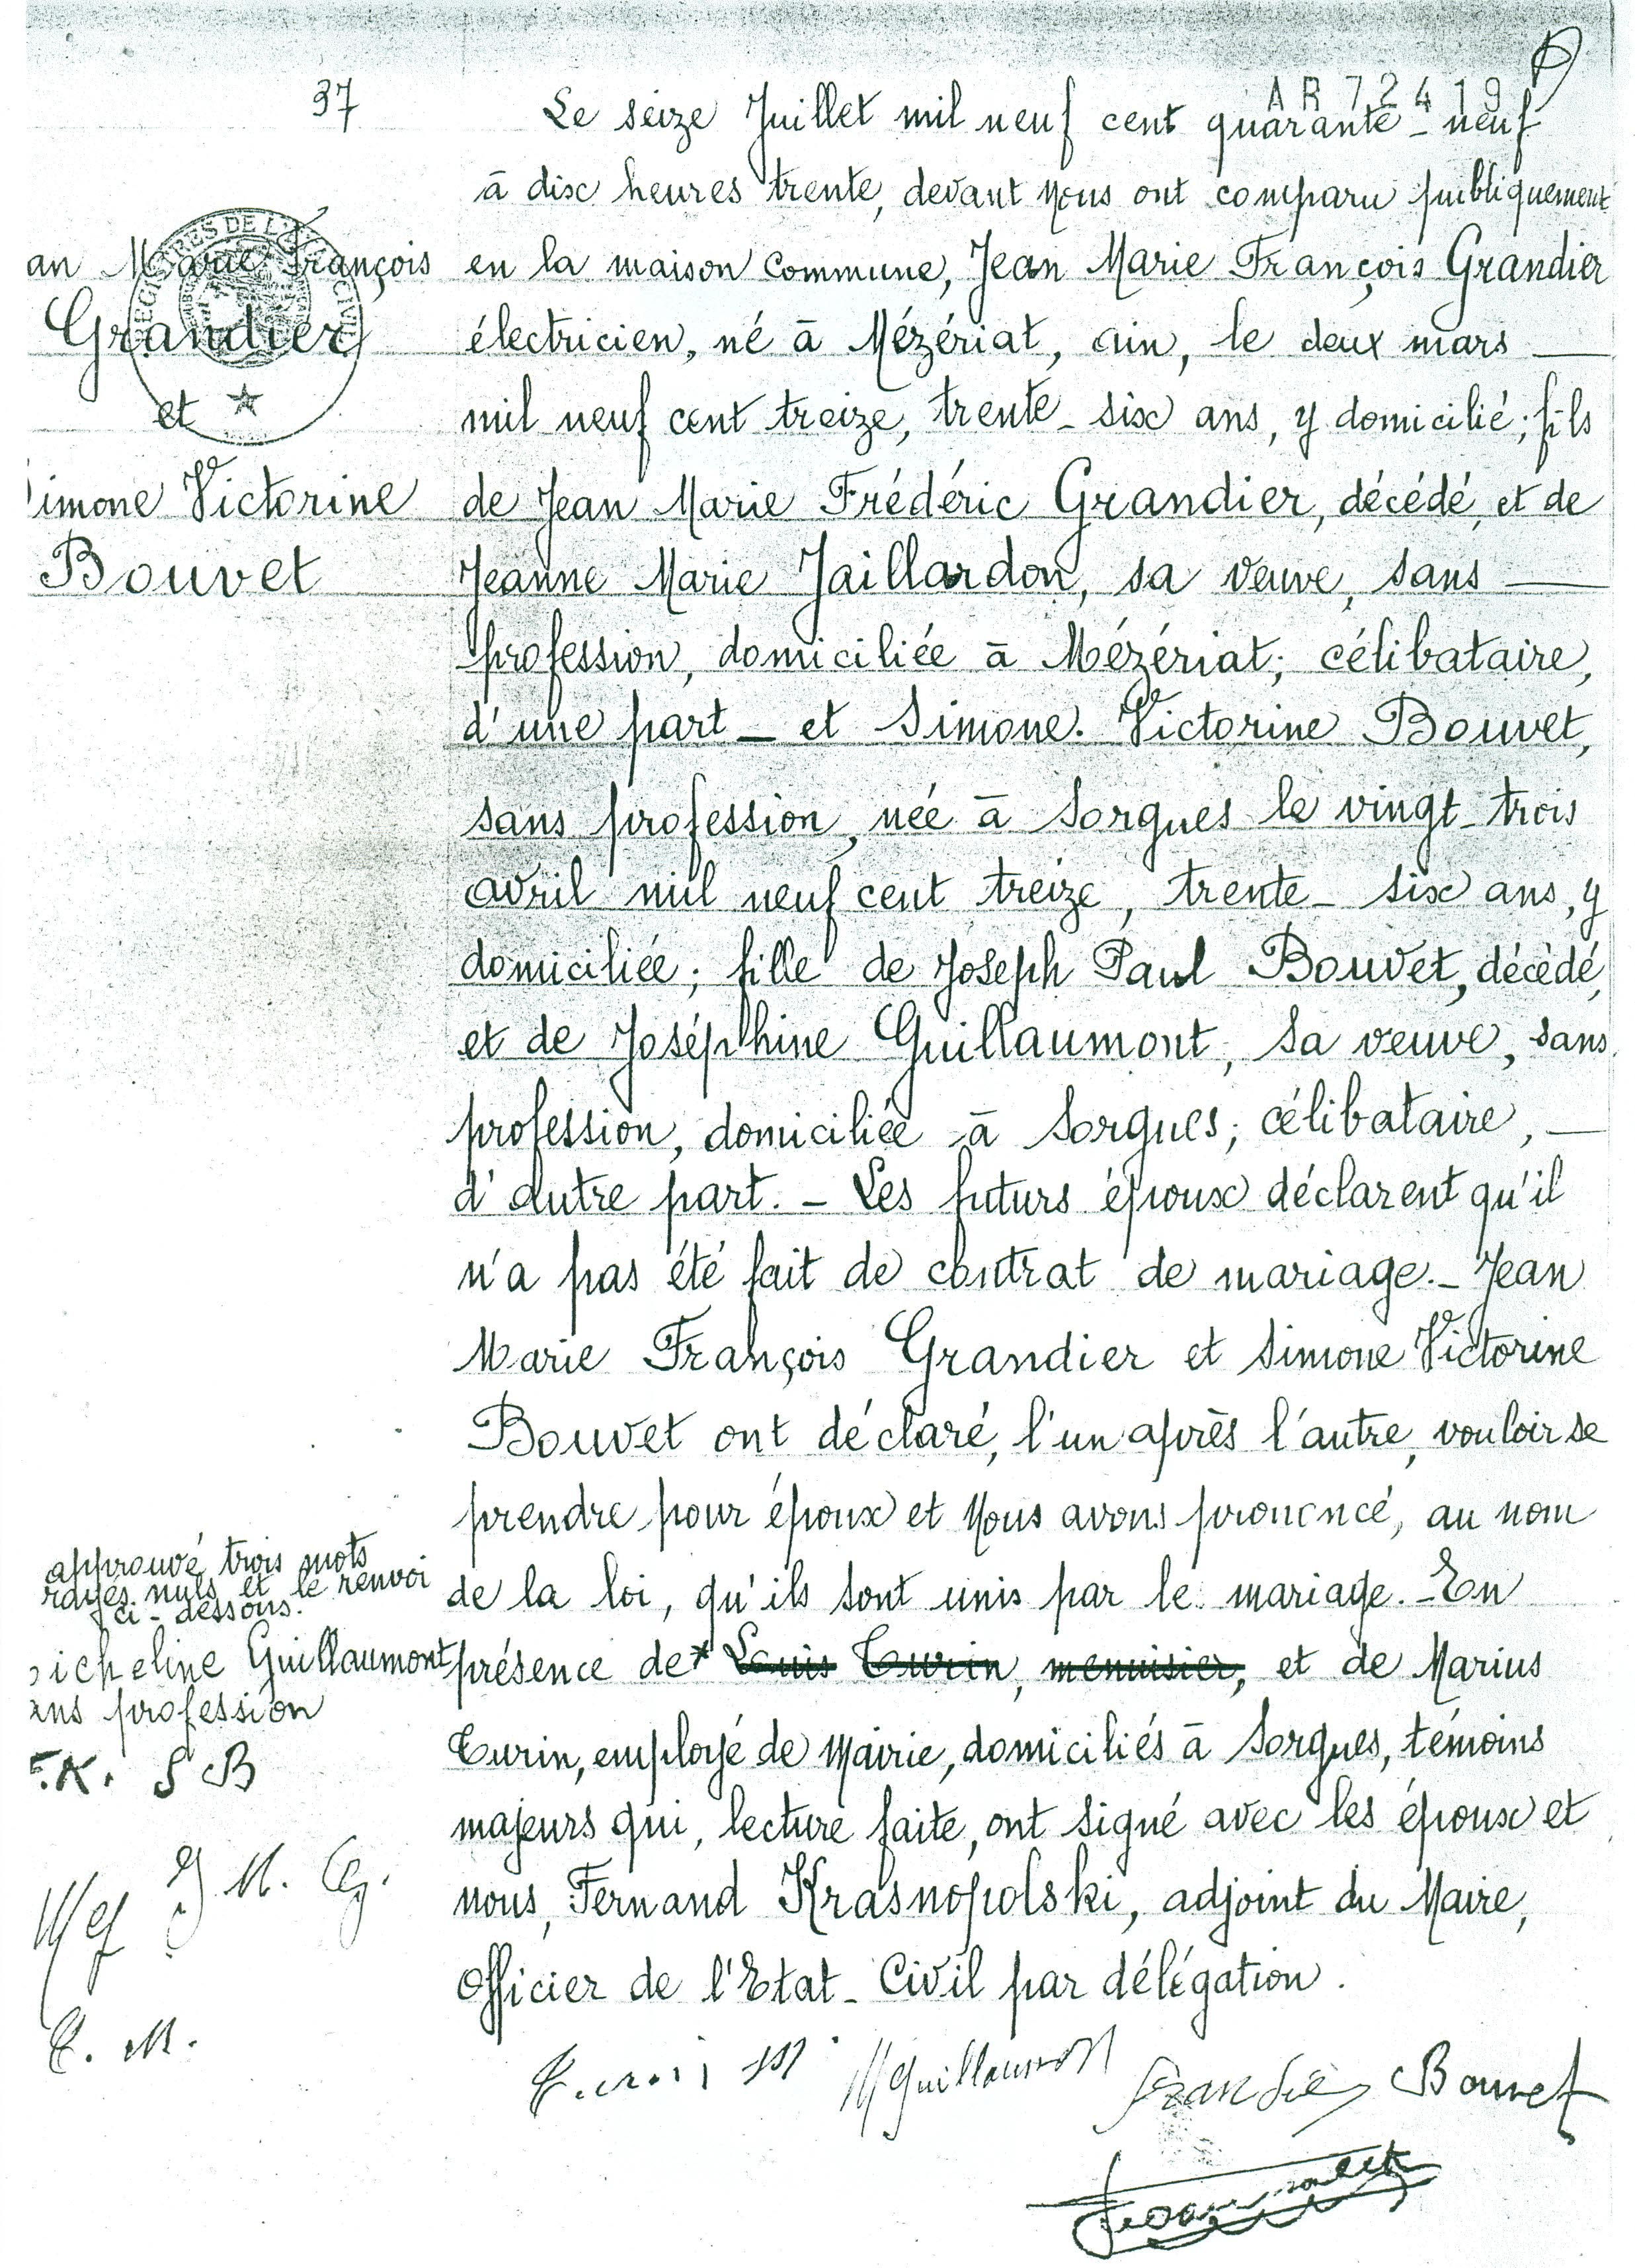 37
AR 72419
Le seize Juillet mil neuf cent quarante-neuf
à dix heures trente, devant Nous ont comparu publiquement
en la maison commune, Jean Marie François Grandier
électricien, né à Mézériat, ain, le deux mars —
mil neuf cent treize, trente-six ans, y domicilié; fils
de Jean Marie Frédéric Grandier, décédé, et de
Jeanne Marie Jaillardon, sa veuve, sans —
profession, domiciliée à Mézériat; célibataire,
d'une part — et Simone. Victorine Bouvet,
sans profession, née à Sorgues le vingt-trois
avril mil neuf cent treize, trente-six ans, y
domiciliée; fille de Joseph Paul Bouvet, décédé,
et de Joséphine Guillaumont, sa veuve, sans
profession, domiciliée à Sorgues; célibataire, —
d'autre part. - Les futurs époux déclarent qu'il
n'a pas été fait de contrat de mariage. - Jean
Marie François Grandier et Simone Victorine
Bouvet ont déclaré, l'un après l'autre, vouloir se
prendre pour époux et Nous avons prononcé, au nom
de la loi, qu'ils sont unis par le mariage. - En
présence de* Louis Turin, menuisier, et de Marius
Turin, employé de Mairie, domiciliés à Sorgues, témoins
majeurs qui, lecture faite, ont signé avec les époux et
nous, Fernand Krasnopolski, adjoint du Maire,
Officier de l'Etat-Civil par délégation.
an Marie François
Grandier
et
imone Victorine
Bouvet
REGISTRES DE L'ÉTAT CIVIL
approuvé trois mots
rayés nuls et le renvoi
ci-dessous.
icheline Guillaumont
ans profession
F.K. S B
J M. G.
T. M.
M Guillaumont Grandier Bouvet